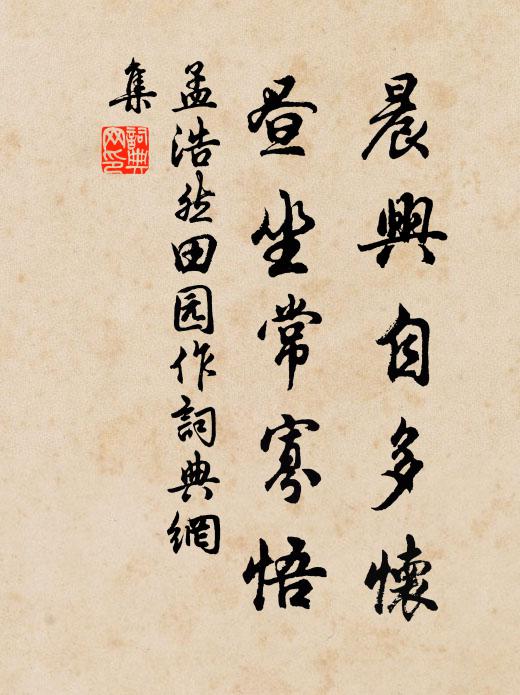 晨興自多懷
晝坐常寡悟
孟浩然田园作詞典網
集
詞典网印